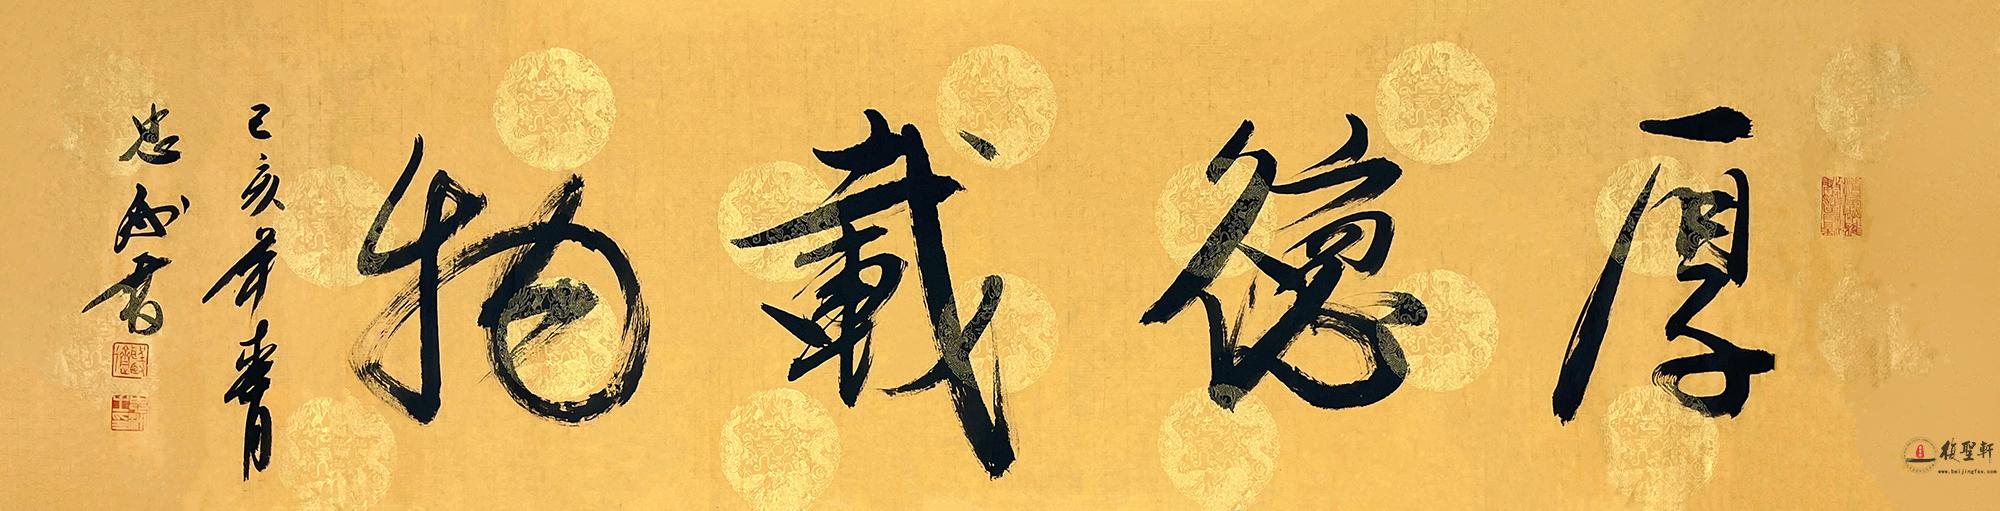 厚德載物
己亥年春月
忠
書
復聖軒
www.beijingfsx.com